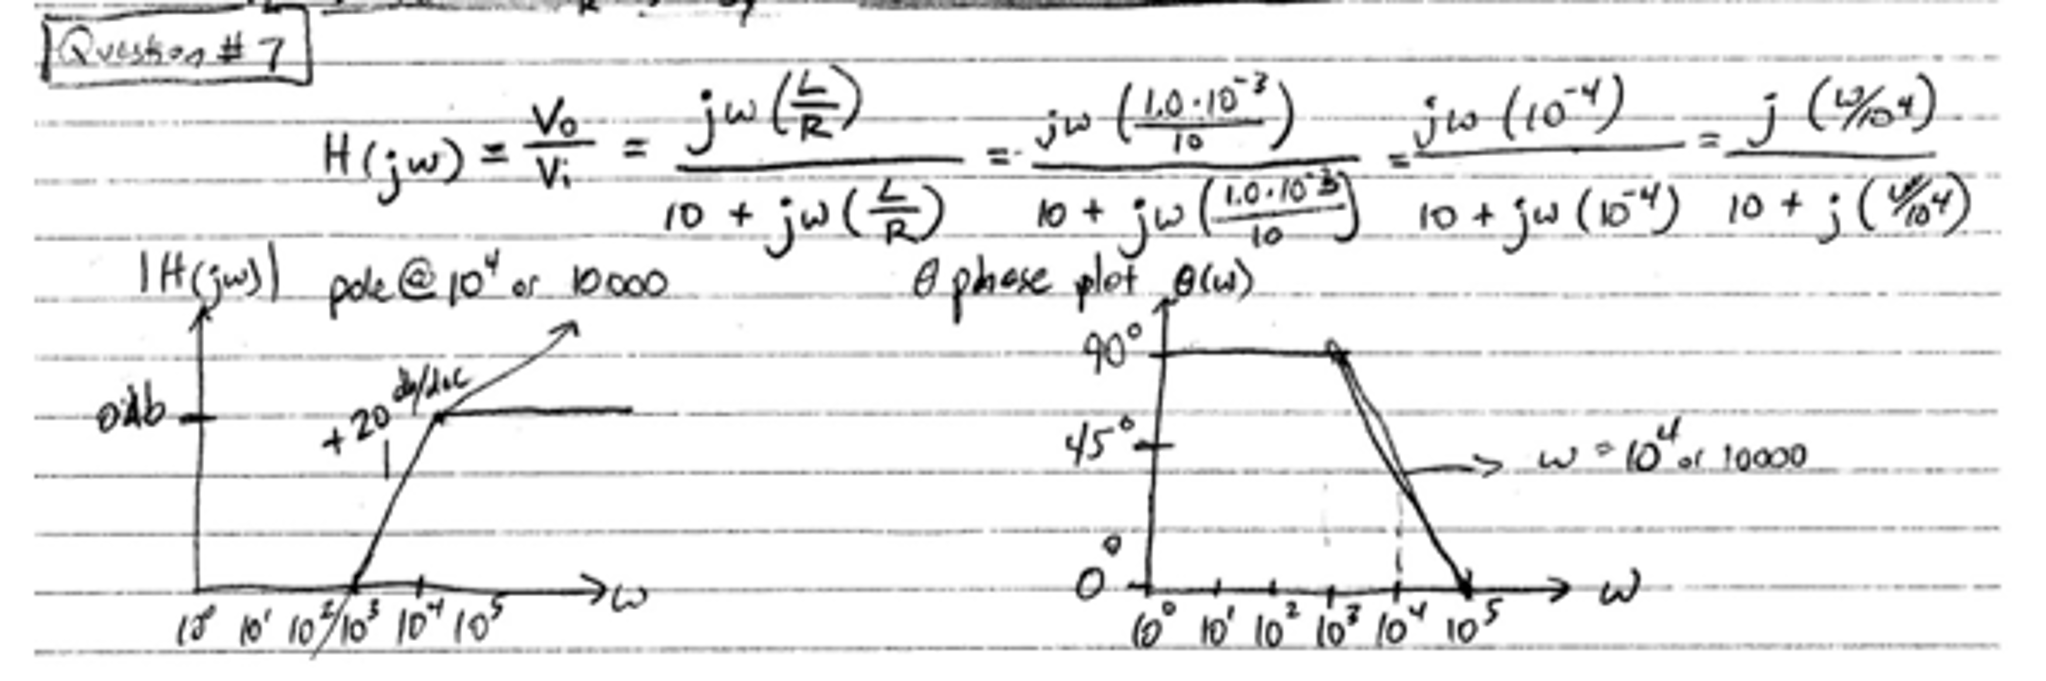 Question # 7
H(jω) = Vo/Vi = jω(L/R) / 10 + jω(L/R) = jω(1.0·10⁻³/10) / 10 + jω(1.0·10⁻³/10) = jω(10⁻⁴) / 10 + jω(10⁻⁴) = j(ω/10⁴) / 10 + j(ω/10⁴)
|H(jω)| pole @ 10⁴ or 10000
0db
+20 db/dec
10⁰ 10¹ 10² 10³ 10⁴ 10⁵
ω
θ phase plot θ(ω)
90°
45°
0°
ω = 10⁴ or 10000
10⁰ 10¹ 10² 10³ 10⁴ 10⁵
ω